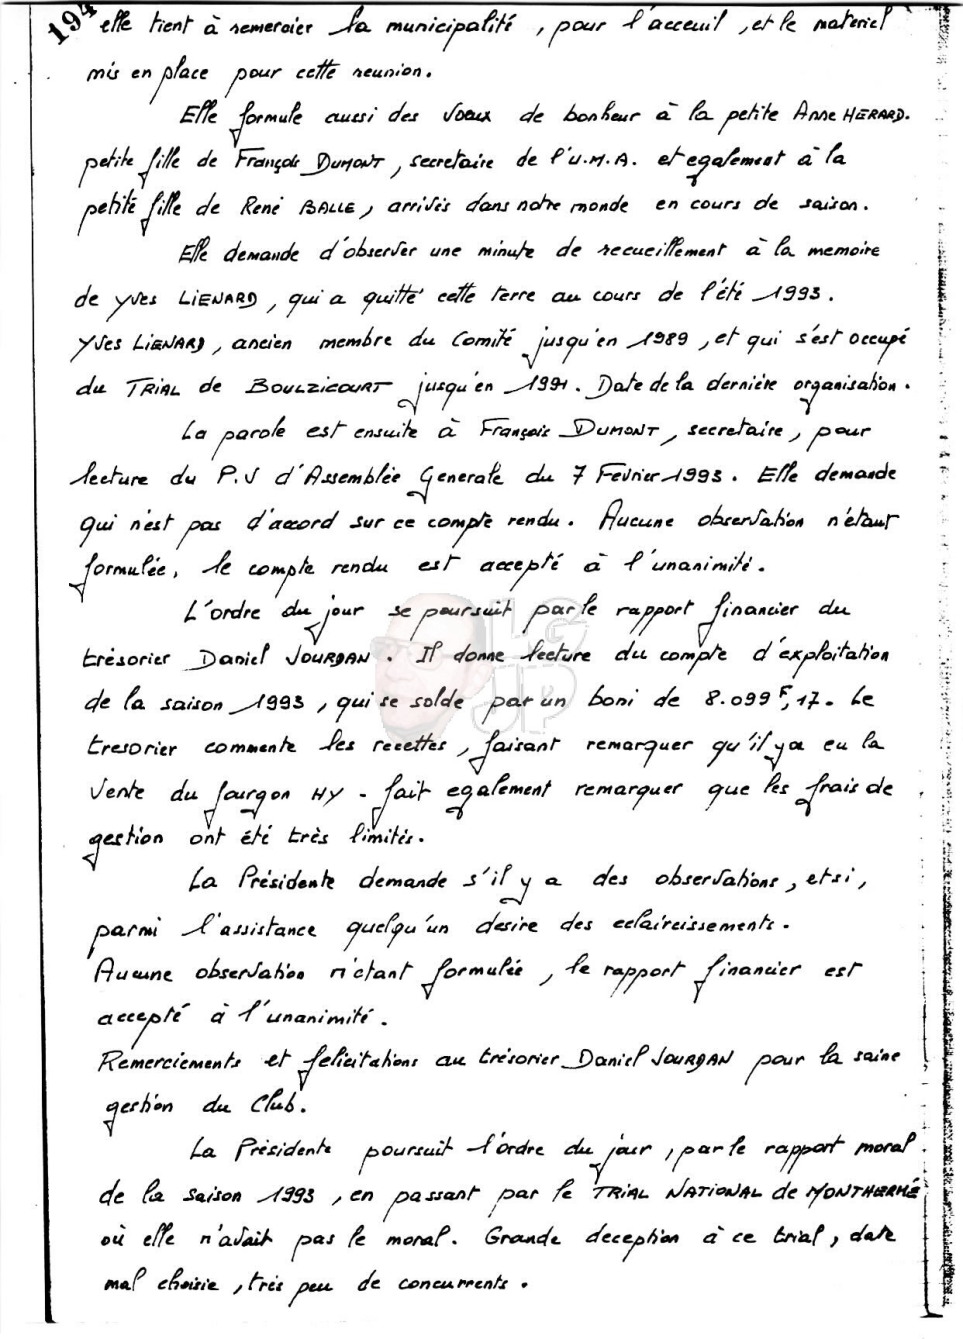 194
elle tient à remercier la municipalité, pour l'acceuil, et le materiel
mis en place pour cette reunion.
Elle formule aussi des voeux de bonheur à la petite Anne HERARD.
petite fille de François DUMONT, secretaire de l'U.M.A. et egalement à la
petite fille de René BALLE, arrivés dans notre monde en cours de saison.
Elle demande d'observer une minute de recueillement à la memoire
de Yves LIENARD, qui a quitté cette terre au cours de l'été 1993.
Yves LIENARD, ancien membre du Comité jusqu'en 1989, et qui s'est occupé
du TRIAL de BOULZICOURT jusqu'en 1991. Date de la dernière organisation.
La parole est ensuite à François DUMONT, secretaire, pour
lecture du P.V d'Assemblée Generale du 7 Fevrier 1993. Elle demande
qui n'est pas d'accord sur ce compte rendu. Aucune observation n'étant
formulée, le compte rendu est accepté à l'unanimité.
L'ordre du jour se poursuit par le rapport financier du
trésorier Daniel JOURDAN. Il donne lecture du compte d'exploitation
de la saison 1993, qui se solde par un boni de 8.099F,17. Le
tresorier commente les recettes, faisant remarquer qu'il y a eu la
vente du fourgon HY - fait egalement remarquer que les frais de
gestion ont été très limités.
La Présidente demande s'il y a des observations, et si,
parmi l'assistance quelqu'un desire des eclaircissements.
Aucune observation n'etant formulée, le rapport financier est
accepté à l'unanimité.
Remerciements et felicitations au trésorier Daniel JOURDAN pour la saine
gestion du Club.
La Présidente poursuit l'ordre du jour, par le rapport moral
de la saison 1993, en passant par le TRIAL NATIONAL de MONTHERMÉ
où elle n'avait pas le moral. Grande deception à ce trial, date
mal choisie, très peu de concurrents.
LG
JP